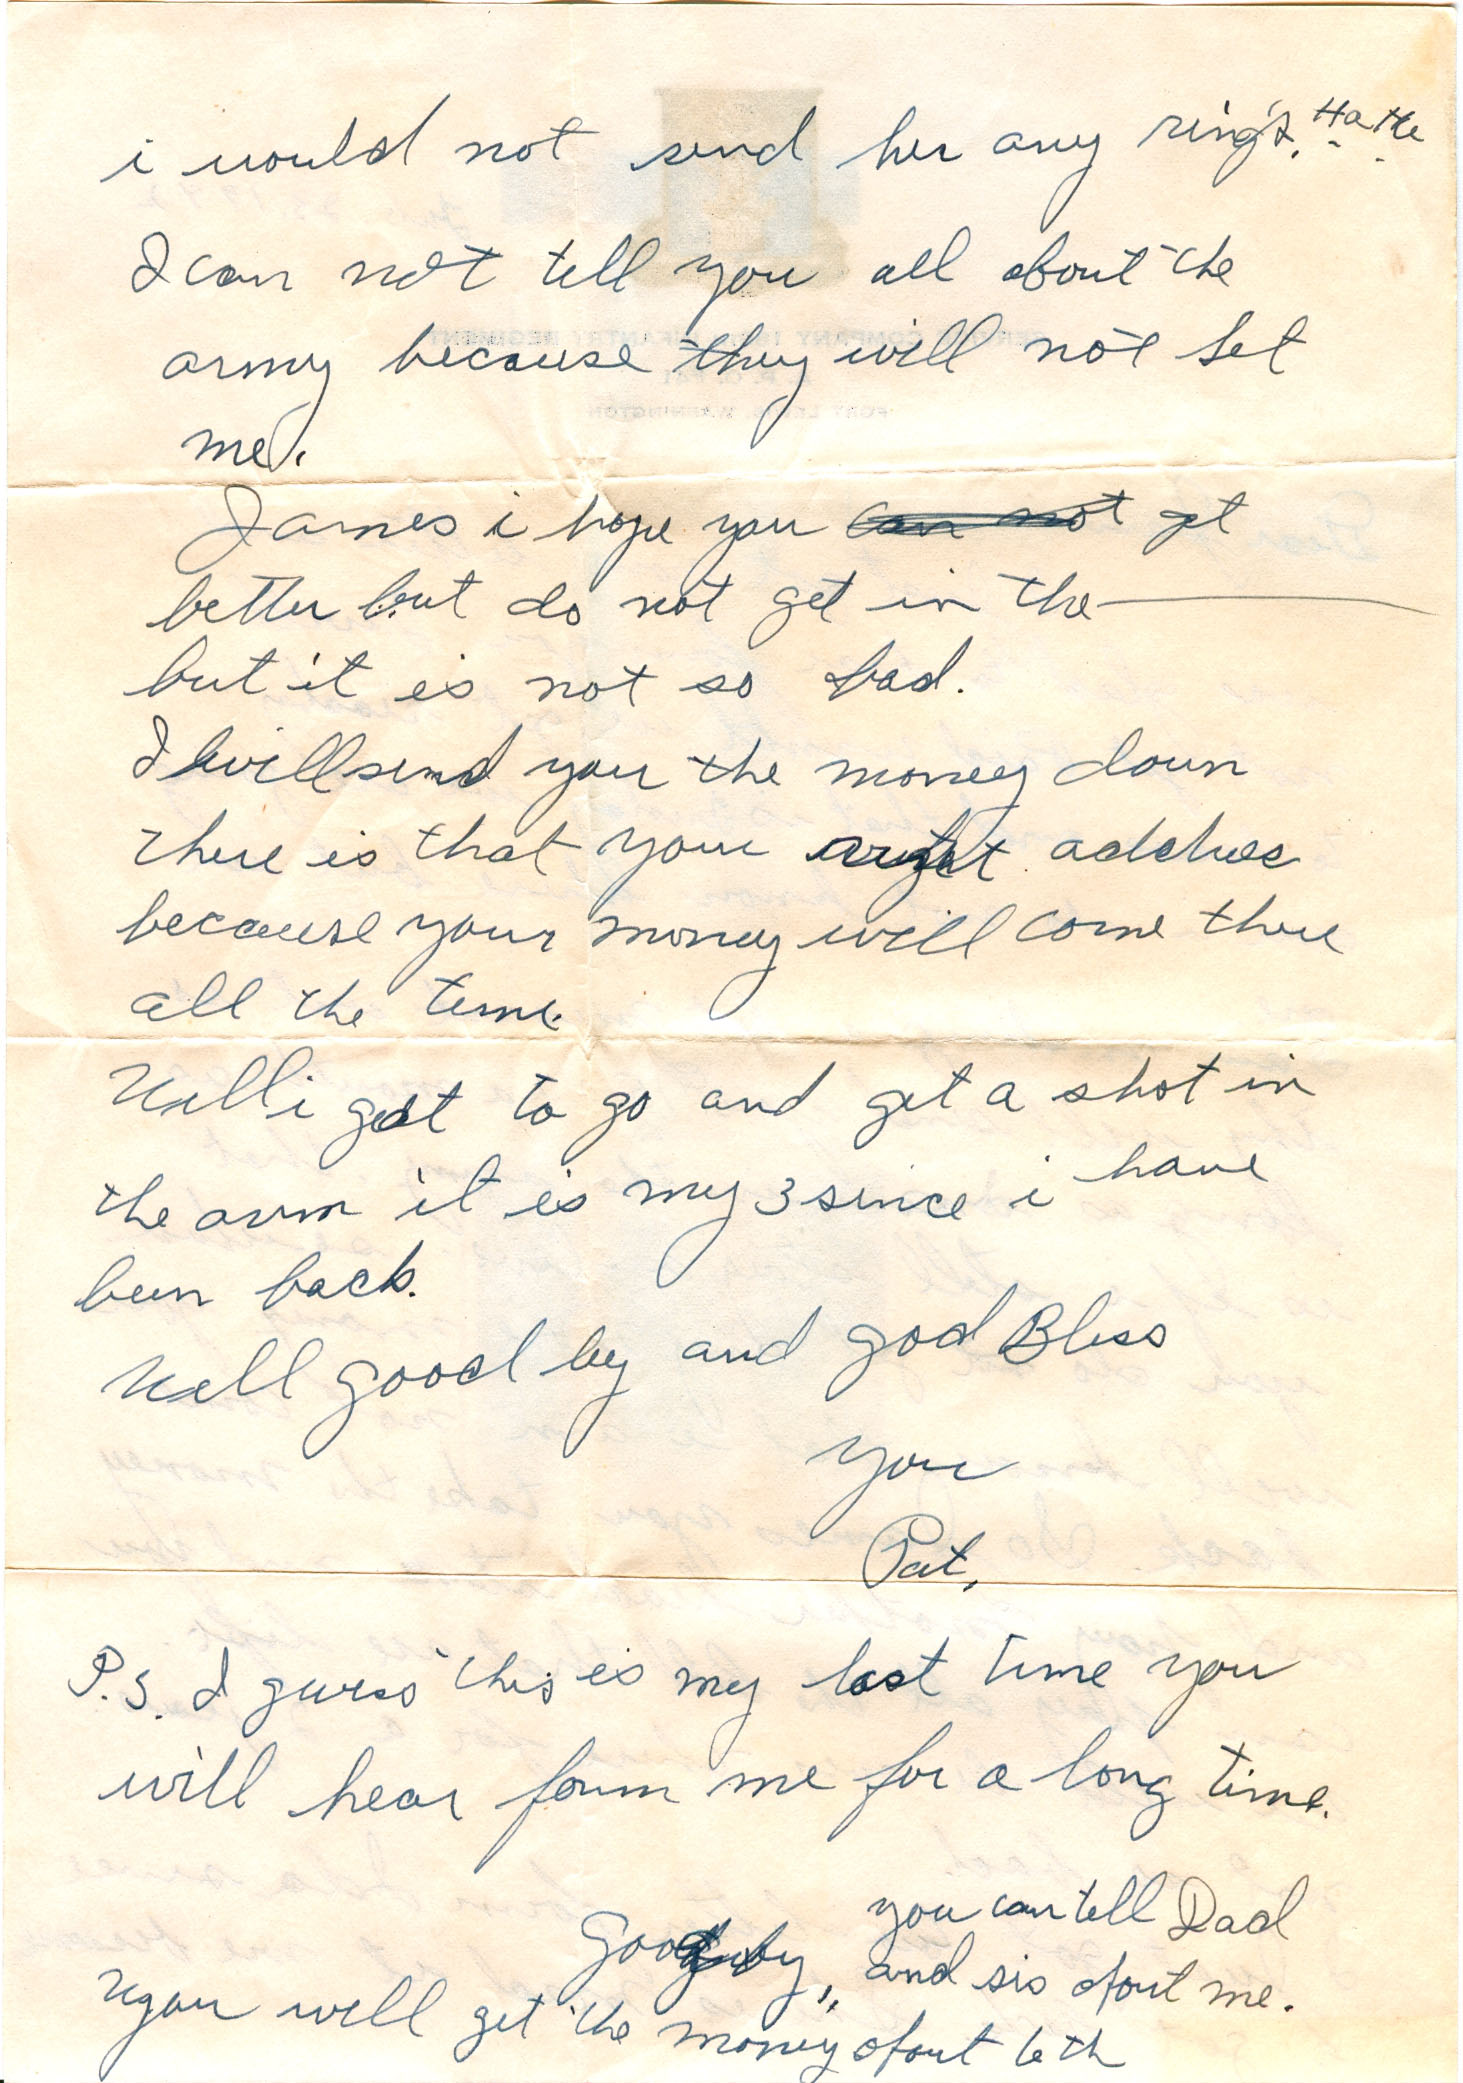 i would not send her any ring's. Ha He
I can not tell you all about the
army because they will not let
me.
James i hope you can not get
better but do not get in the ———
but it is not so bad.
I will send you the money down
there is that your right addres
because your money will come there
all the time.
Well i got to go and get a shot in
the arm it is my 3 since i have
been back.
Well good by and god Bless
you
Pat,
P.S. I guess this is my last time you
will hear form me for a long time.
you can tell Dad
Goodby,, and sis about me.
you will get the money about 6th